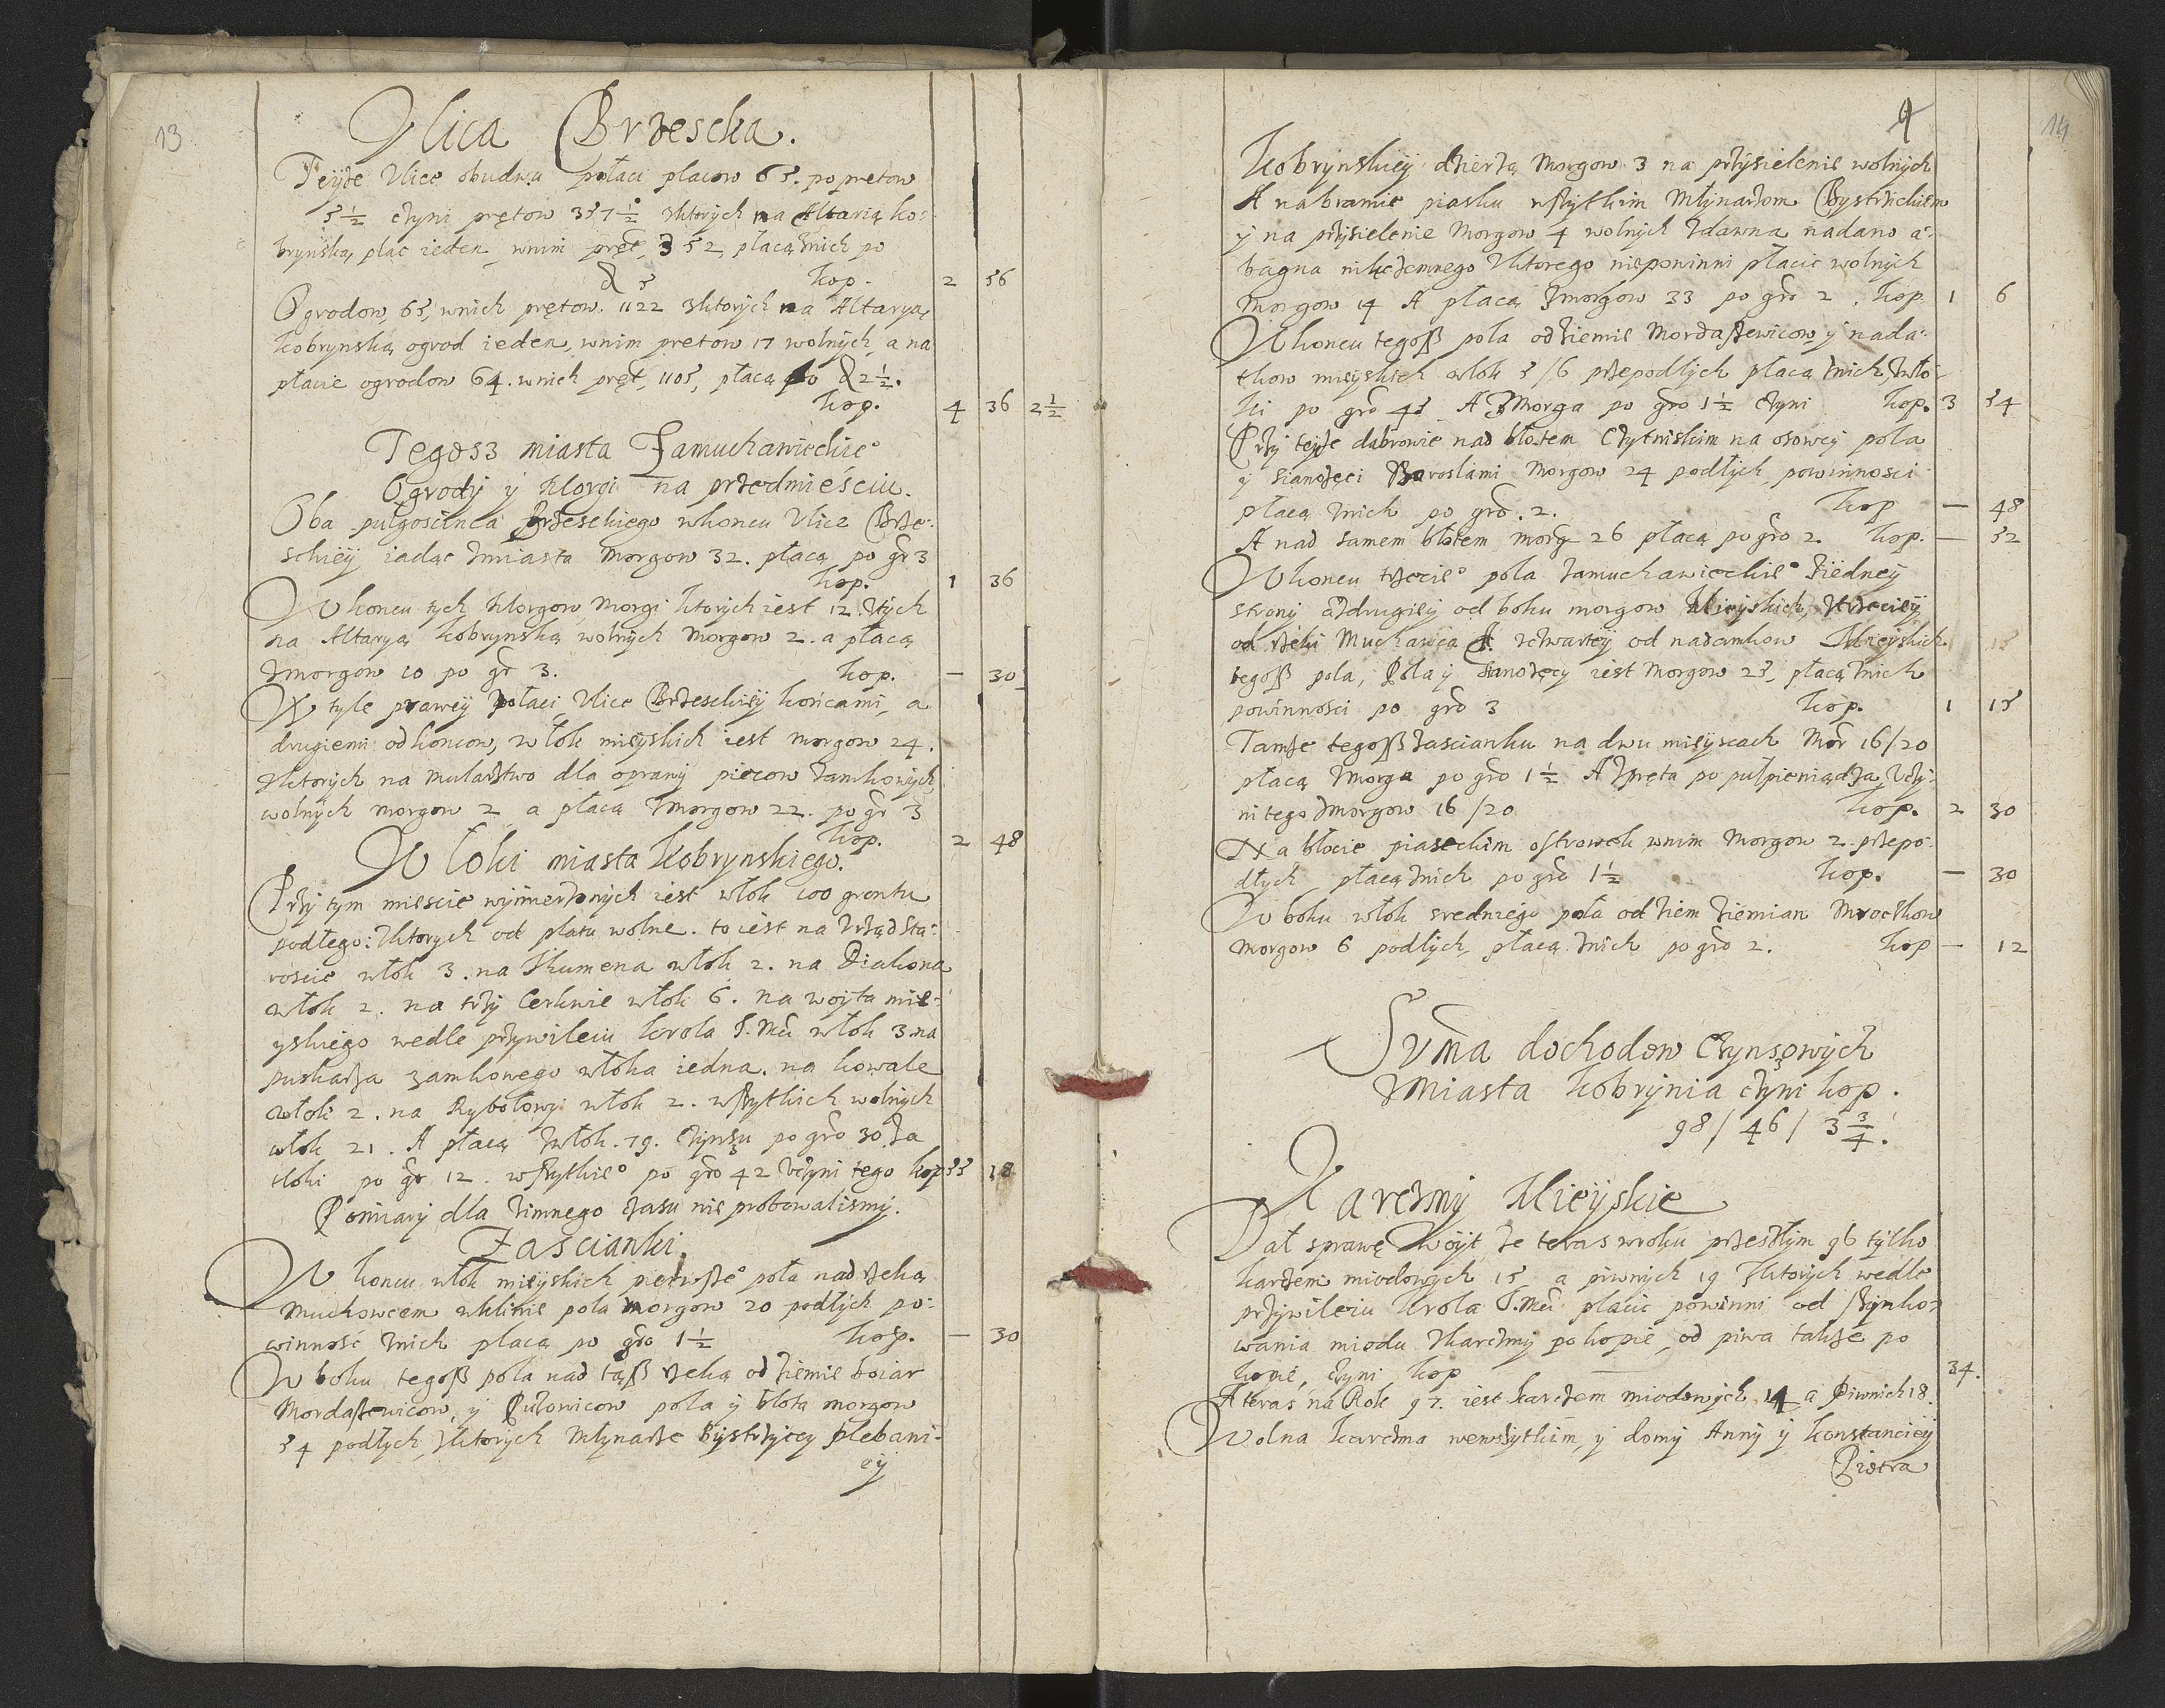 13
Ulica Brzescka.
Teyże Ulice obudwu połaci placow 65. po prętow
5 1/2 czyni prętow 357 1/2 z ktorych na Altarią ko-
brynską plac ieden, wnim pręt, 3 52 płacą znich po
₰ 5 kop. 2 56
Ogrodow, 65, wnich prętow. 1122 z ktorych na Altaryą
kobrynską ogrod ieden, wnim pretow 17 wolnych, a na
płacie ogrodow 64. wnich pręt, 1105, płacą po ₰ 2 1/2.
kop. 4 36 2 1/2
Tegosz miasta Zamuchawieckie
Ogrody y Morgi na przedmieściu.
Oba pulgoscinca Brzeskiego wkoncu Ulice Brze-
skiey iadąc zmiasta morgow 32. płacą po gr 3
kop. 1 36
W koncu tych Morgow, Morgi ktorych iest 12. ztych
na Altaryą kobrynską wolnych morgow 2. a płacą
zmorgow 10 po gr 3. kop. — 30
W tyle prawey połaci, Ulice Brzeskiey końcami, a
drugiemi od koncow, włok mieyskich iest morgow 24.
z ktorych na mularstwo dla oprawy piecow zamkowych,
wolnych morgow 2 a płacą zmorgow 22. po gr 3
kop. 2 48
Włoki miasta Kobrynskiego.
Przy tym miescie wymierzonych iest włok 100 gruntu
podłego: z ktorych od płatu wolne. to iest na Urząd sta-
roscie włok 3. na Ihumena włok 2. na Diakona
włok 2. na trzy Cerkwie włok 6. na woyta mie-
yskiego wedle przywileiu krola J. Mci włok 3. na
puskarza zamkowego włoka iedna. na kowale
włoki 2. na Rybołowy włok 2. wszytkich wolnych
włok 21. A płacą zwłok. 79. czynszu po gro 30. za
tłoki po gr 12. wszytkie° po gro 42 Uczyni tego kop 55 18
Pomiary dla zimnego czasu nie probowalismy.
Zascianki.
W koncu włok mieyskich pierwsze° pola nad rzeką
Muchowcem wklinie pola morgow 20 podłych po-
winność znich płacą po gro 1 1/2 kop. — 30
W boku tegoß pola nad tąß rzeką od ziemie boiar
Mordaszewicow, y Putowicow pola y błota morgow
54 podłych, z ktorych Młynarze Bystrzyccy plebani-
ey
4
14
Kobrynskiey dzierzą morgow 3 na przysielenie wolnych
A nabranie piasku wszytkim Młynarzom Bystrzickiem
y na przysielenie morgow 4 wolnych zdawna nadano a-
bagna nikczemnego z ktorego niepowinni płacic wolnych
morgow 14 A płacą z morgow 33 po gro 2. kop. 1 6
Wkoncu tegoß pola od ziemie Mordaszewicow y nada-
tkow mieyskich włok 5/6 przepodłych płacą znich, zwło-
ki po gro 45 A z Morga po gro 1 1/2 czyni kop. 3 54
Przy teyże dabrowie nad błotem Czytniskim na osowcy pola
y sianożęci Zaroslami morgow 24 podłych, powinnosci
płacą znich po gro. 2. kop — 48
A nad samem błotem morg 26 płacą po gro 2. kop. — 52
Wkoncu trzecie° pola zamuchawieckie° ziedney
strony a zdrugiey od boku morgow Mieyskich, ztrzeciey
od rzeki Muchawca zczwartey od nadawkow Mieyskich
tegoß pola, Pola y sianożęcy iest morgow 25, płacą znich
powinności po gro 3 kop. 1 15
Tamże tegoß zascianku na dwu mieyscach mor 16/20
płacą zmorga po gro 1 1/2 A zpręta po pułpieniądza Uczy-
ni tego zmorgow 16/20 kop. 2 30
Na błocie piaseckim ostrowek wnim morgow 2. przepo-
dłych płacą znich po gro 1 1/2 kop. — 30
W boku włok sredniego pola od ziem ziemian Mroczkow
morgow 6 podłych, płacą znich po gro 2. kop — 12
Suma dochodow czynszowych
zmiasta kobrynia czyni kop.
98/ 46/ 3 3/4.
Karczmy Mieyskie
Dał sprawę Woyt że teras wroku przeszłym 96 tylko
karczem miodowych 15 a piwnych 19 z ktorych wedle
przywileiu krola J. Mci płacic powinni od szynko-
wania miodu zkarczmy po kopie, od piwa także po
kopie, czyni kop 34.
A teras na Rok 97. iest karczem miodowych 14 a Piwnich 18.
Wolna karczma wewszytkim, y domy Anny y Konstanciey
Piotra